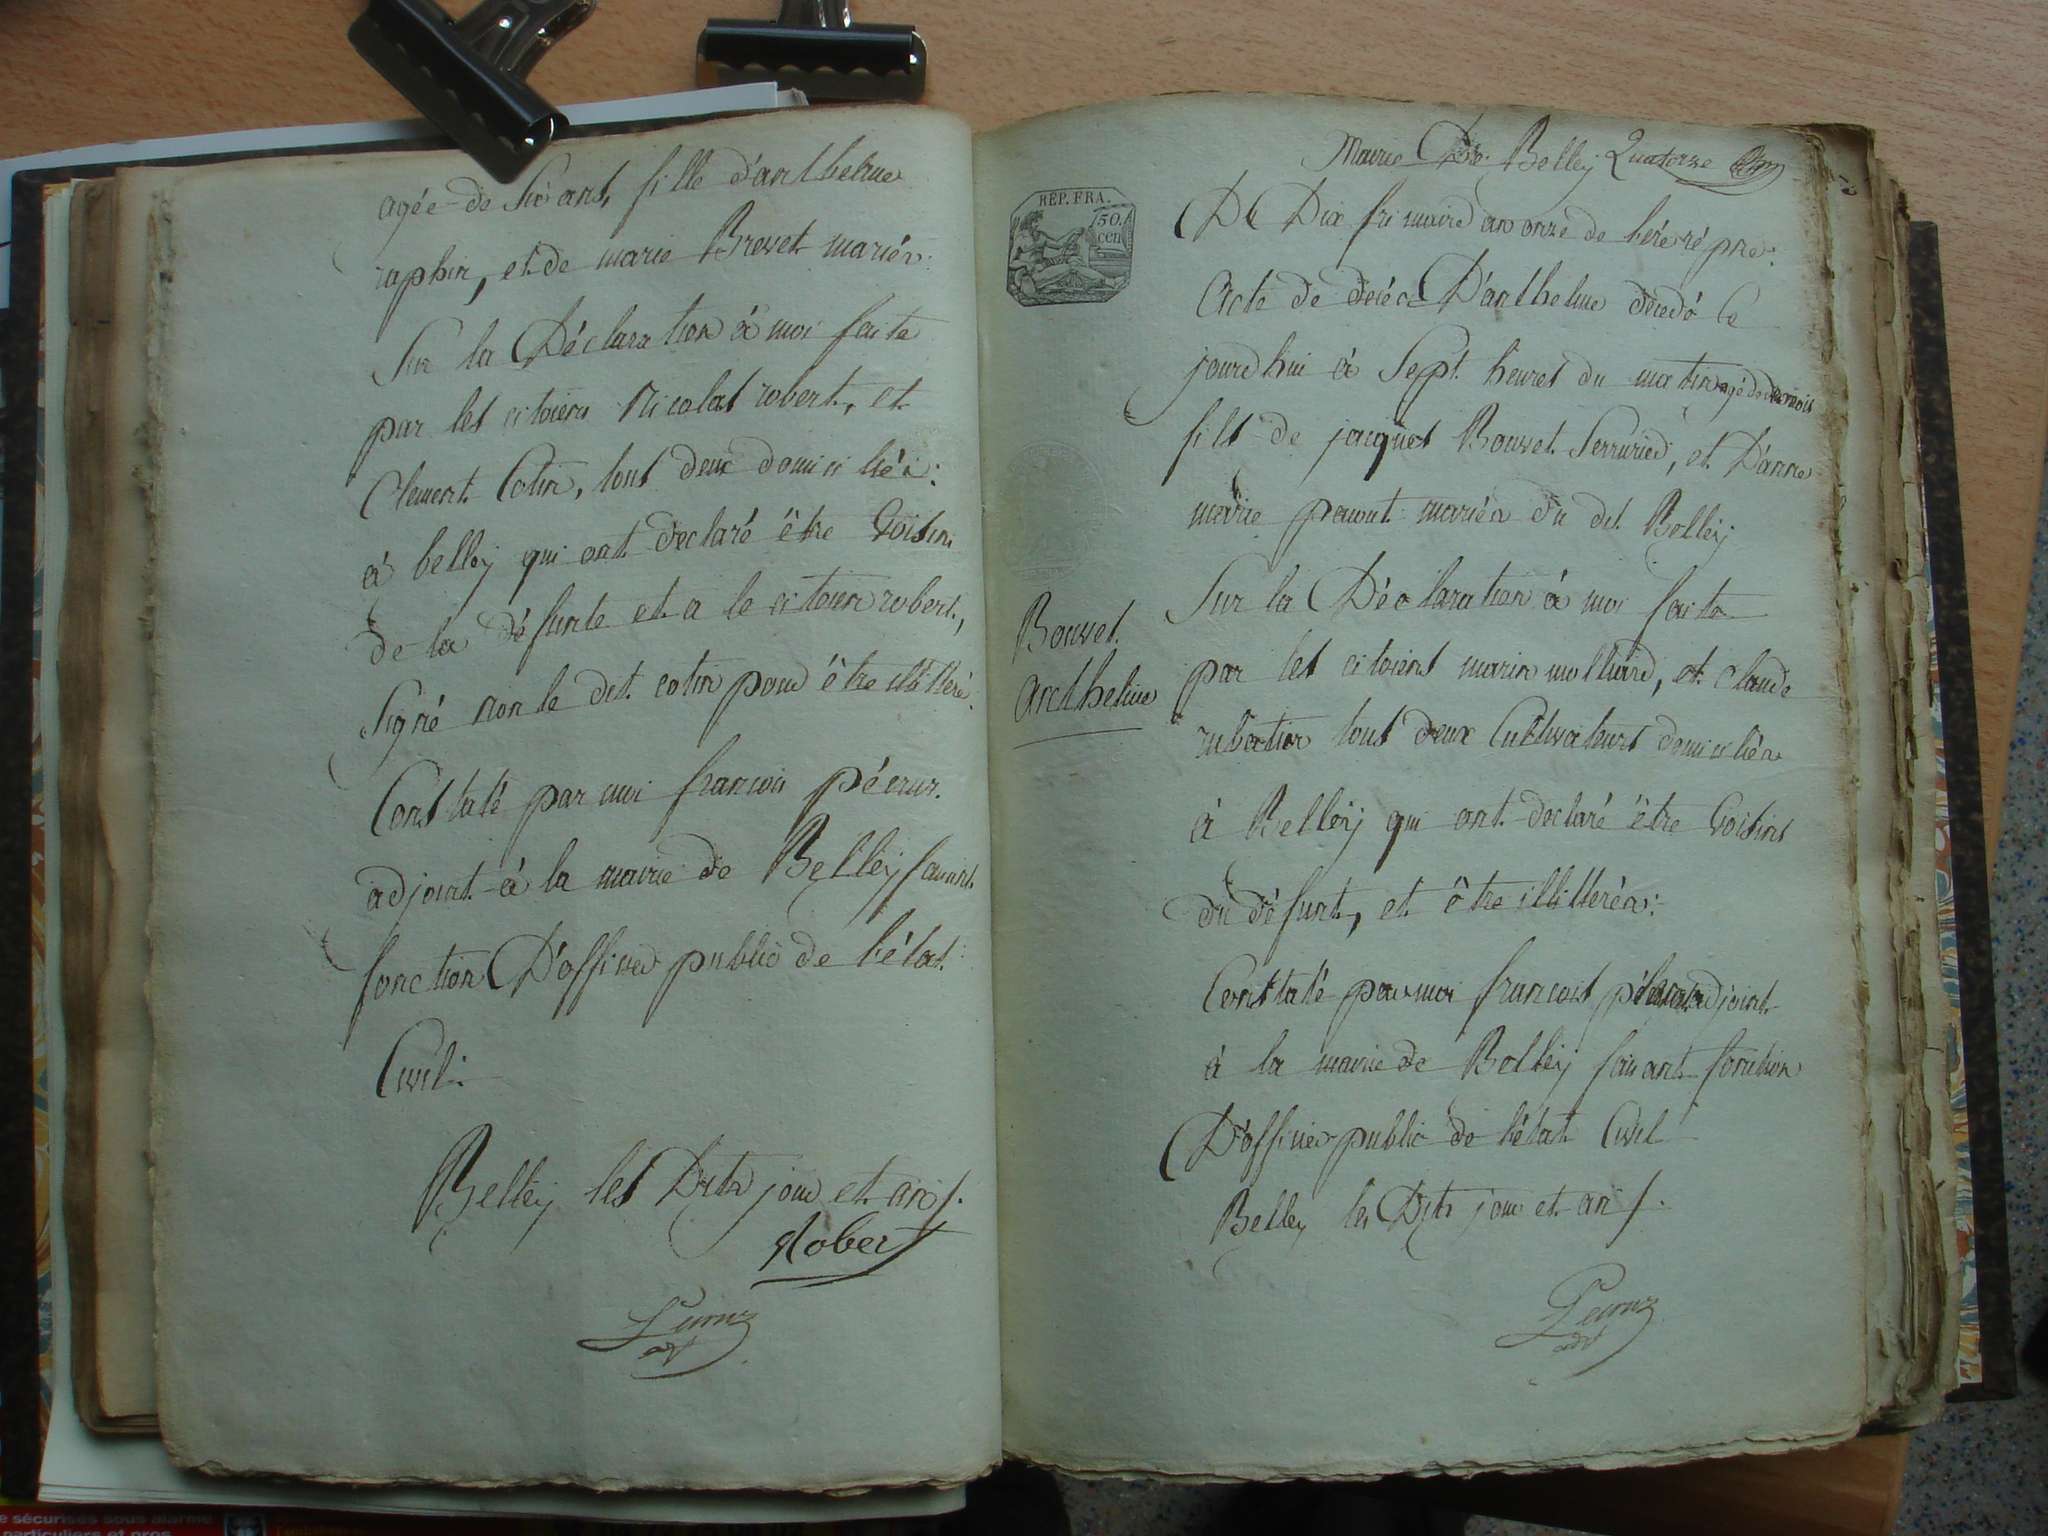 agée de Six ans, fille d'anthelme
raphin, et de marie Brevet mariés:
Sur la Déclaration à moi faite
par les citoiens Nicolas robert, et
Clement Cotin, tous deux domiciliés:
à belleÿ qui ont déclaré être Voisins
de la défunte et a le citoien robert,
Signé non le dit cotin pour être illitéré.
Constaté par moi francois pécruz
adjoint à la mairie de Belleÿ faisant
fonction D'officier public de l'état
Civil:
Belleÿ les Dits jour et an /.
Robert
Pecruz
adt
Mairie De Belleÿ Quatorze
REP. FRA.
50.
cen
Du Dix frimaire an onze de l'ére répne:
Acte de decés D'anthelme décédé ce
jourd'hui à Sept heures du matin agé de mois
fils de jacques Bouvet Serrurier, et D'anne
marie pavout mariés du dit Belleÿ
Sur la Déclaration à moi faite
par les citoiens marin molliard, et claude
rubatier tous deux Cultivateurs domiciliés
à Belleÿ qui ont déclaré être Voisins
du défunt, et être illitterés:
Constaté par moi francois adjoint
à la mairie de Belleÿ faisant fonction
D'officier public de l'état Civil
Belleÿ les Dits jour et an /.
Pecruz
adt
Bouvet
Anthelme
e sécurisés sous alarme
particuliers et pros